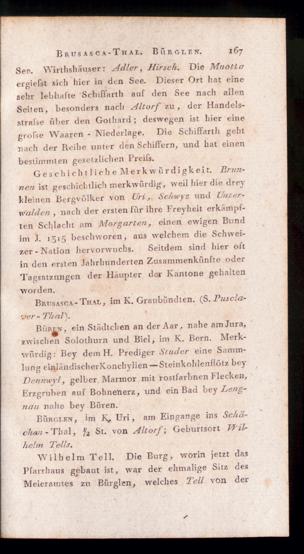 BRUSASCA-THAL. BÜRGLEN. 167
See. Wirthshäuser: Adler, Hirsch. Die Muotta
ergiefst sich hier in den See. Dieser Ort hat eine
sehr lebhafte Schiffarth auf den See nach allen
Seiten, besonders nach Altorf zu, der Handels-
strafse über den Gothard; deswegen ist hier eine
grofse Waaren-Niederlage. Die Schiffarth geht
nach der Reihe unter den Schiffern, und hat einen
bestimmten gesetzlichen Preifs.
Geschichtliche Merkwürdigkeit. Brun-
nen ist geschichtlich merkwürdig, weil hier die drey
kleinen Bergvölker von Uri, Schwyz und Unter-
walden, nach der ersten für ihre Freyheit erkämpf-
ten Schlacht am Morgarten, einen ewigen Bund
im J. 1315 beschworen, aus welchem die Schwei-
zer-Nation hervorwuchs. Seitdem sind hier oft
in den ersten Jahrhunderten Zusammenkünfte oder
Tagsatzungen der Häupter der Kantone gehalten
worden.
BRUSASCA-THAL, im K. Graubündten. (S. Puscla-
ver-Thal).
BÜREN, ein Städtchen an der Aar, nahe am Jura,
zwischen Solothurn und Biel, im K. Bern. Merk-
würdig: Bey dem H. Prediger Studer eine Samm-
lung einländischer Konchylien — Steinkohlenflötz bey
Dennwyl, gelber Marmor mit rostfarbnen Flecken,
Erzgruben auf Bohnenerz, und ein Bad bey Leng-
nau nahe bey Büren.
BÜRGLEN, im K. Uri, am Eingange ins Schä-
chen-Thal, ½ St. von Altorf; Geburtsort Wil-
helm Tells.
Wilhelm Tell. Die Burg, worin jetzt das
Pfarrhaus gebaut ist, war der ehmalige Sitz des
Meieramtes zu Bürglen, welches Tell von der